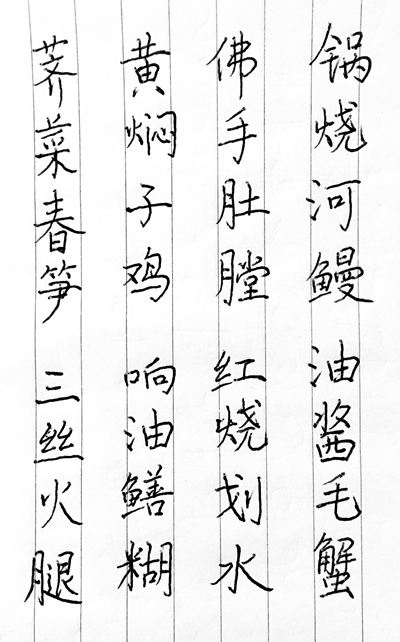 锅烧河鳗 油酱毛蟹
佛手肚膛 红烧划水
黄焖子鸡 响油鳝糊
荠菜春笋 三丝火腿